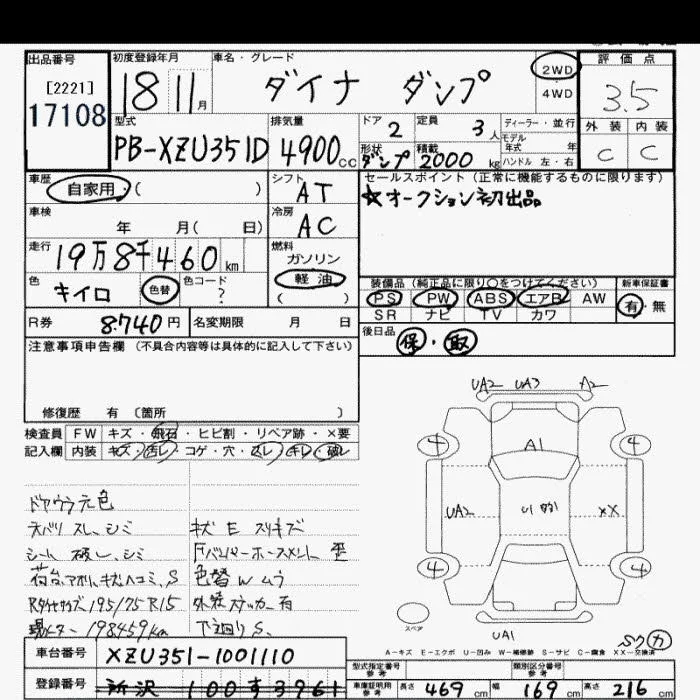 出品番号
[2221]
17108
初度登録年月
18 11月
車名・グレード
ダイナ ダンプ
2WD
4WD
評価点
3.5
外装 内装
C C
型式
PB-XZU351D
排気量
4900cc
ドア
2
定員
3人
ディーラー・並行
モデル年式 年
形状
ダンプ
積載
2000kg
ハンドル 左・右
車歴
自家用・( )
シフト
AT
セールスポイント(正常に機能するものに限ります)
☆オークション初出品
車検
年 月( 日)
冷房
AC
走行
19万8千460km
燃料
ガソリン
軽油
( )
色
キイロ
色替
色コード
?
装備品(純正品に限り○をつけてください)
新車保証書
PS PW ABS エアB AW
有・無
SR ナビ TV カワ
R券 8740円
名変期限 月 日
後日品
保・取
注意事項申告欄(不具合内容等は具体的に記入して下さい)
修復歴 有(箇所 )
検査員 FW キズ・飛石・ヒビ割・リペア跡・×要
記入欄 内装 キズ・汚レ・コゲ・穴・スレ・キレ・破レ
ドアウラ元色
スレ、シミ
キズ E スリキズ
シート 破レ、シミ
荷台アオリ、キズ、ヘコミ、S
色替 W ムラ
195/75 R15
外装 ステッカー有
現メーター 198459km
下廻り S、
UA2 UA3 A2
4 4
A1
UA2
XX
4 4
スペア
UA1
A-キズ E-エクボ U-凹み W-補修跡 S-サビ C-腐食 XX-交換済
車台番号 XZU351-1001110
登録番号 所沢 100す3961
型式指定番号
参考
類別区分番号
参考
車庫証明用
参考
長さ 469cm 幅 169cm 高さ 216cm